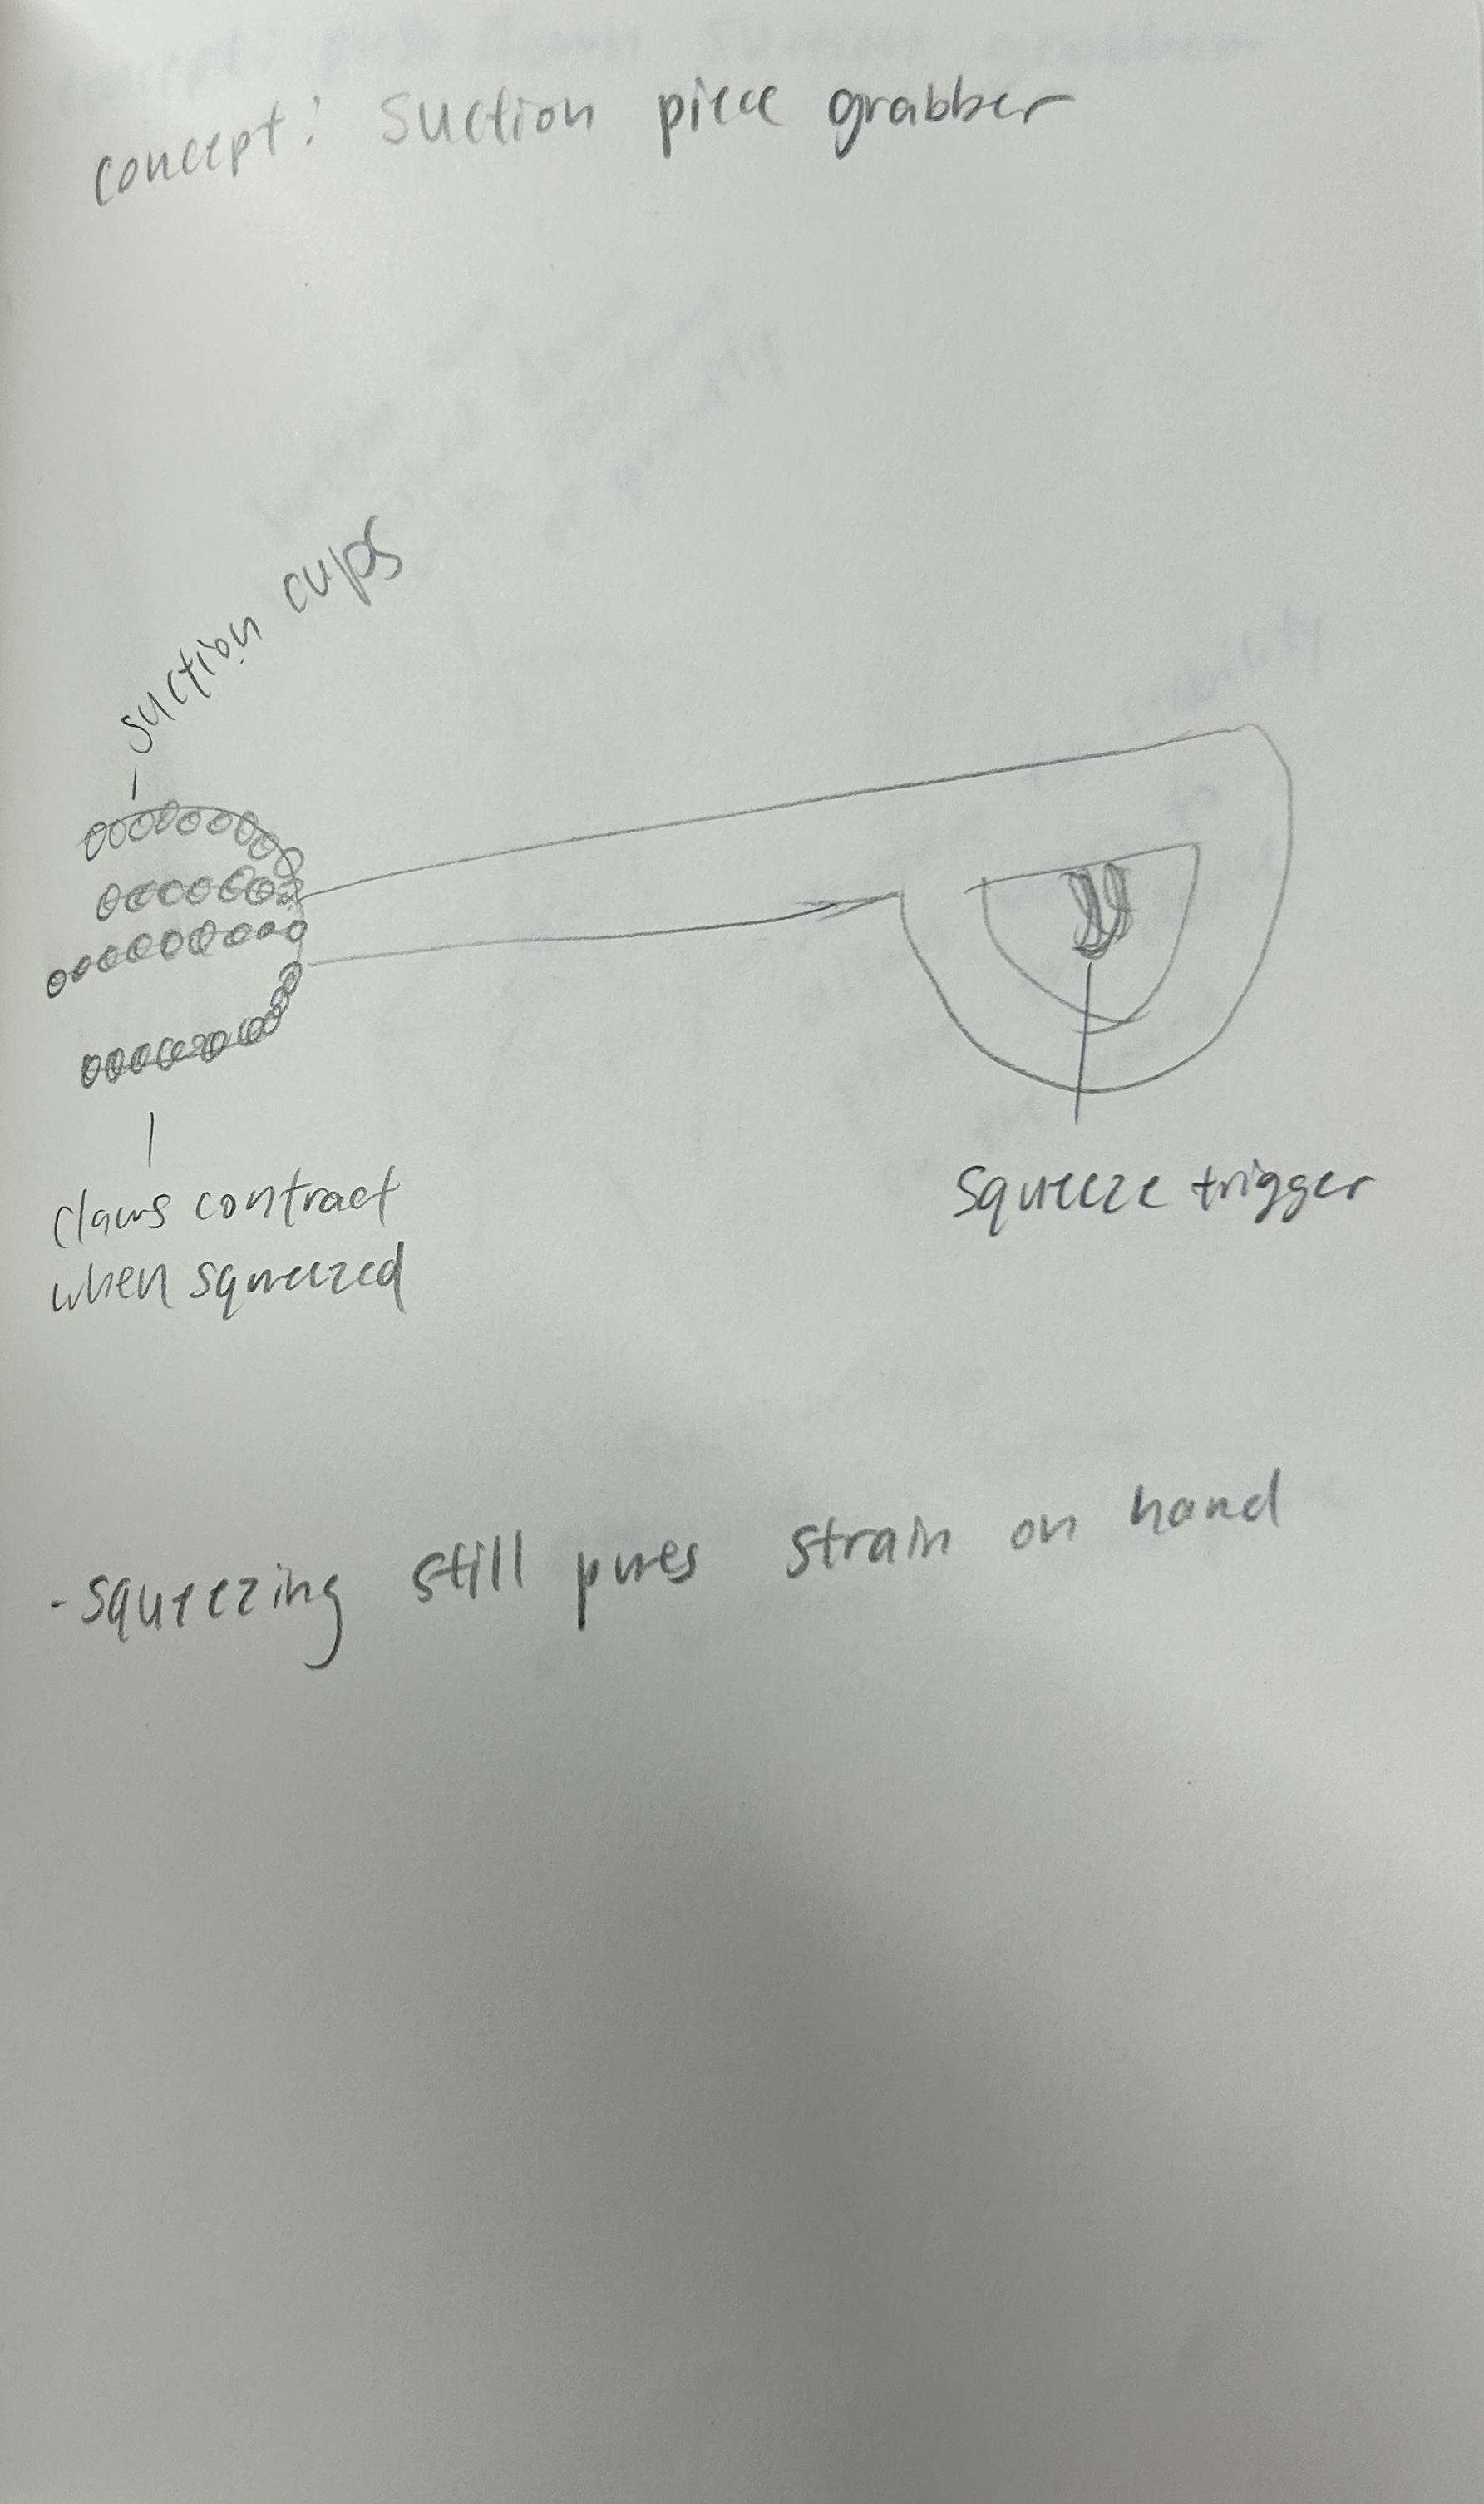 concept: suction piece grabber
suction cups
claws contract
when squeezed
squeeze trigger
- squeezing still strain on hand